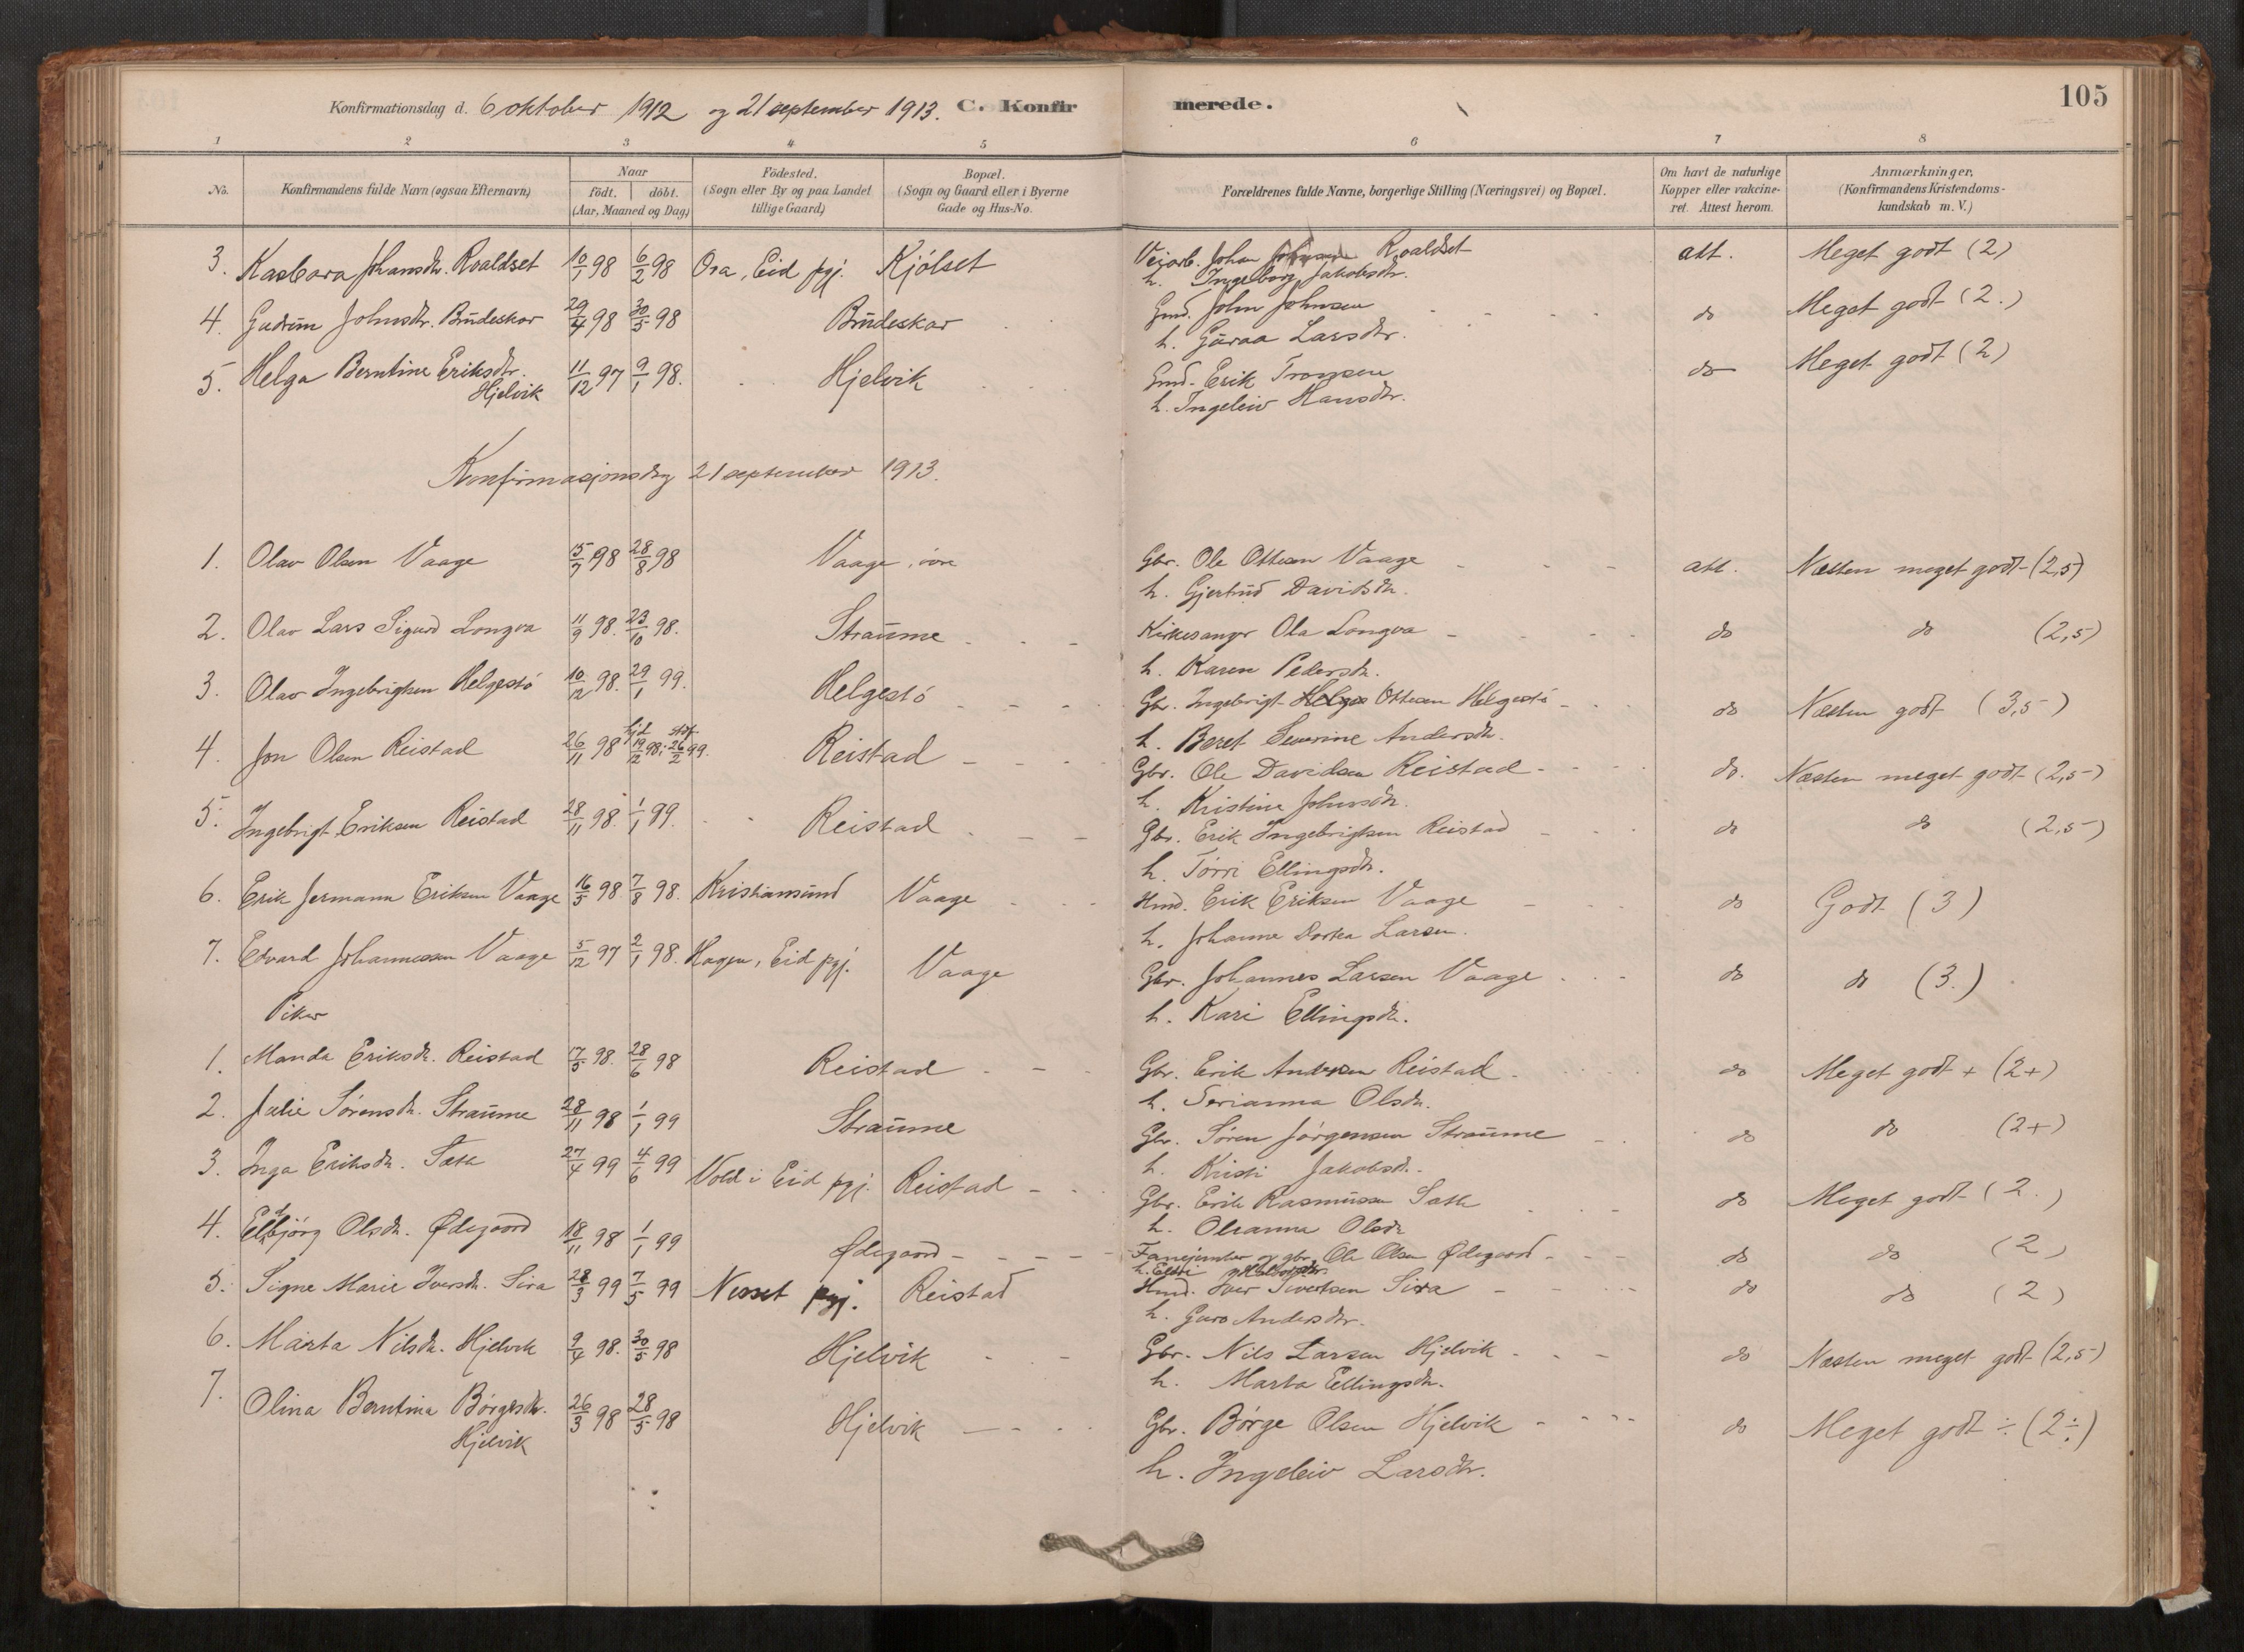 105
Konfirmationsdag d. 6 oktober 1912 og 21 september 1913. C. Konfirmerede.
1 2 3 4 5 6 7 8
No. Konfirmandens fulde Navn (ogsaa Efternavn) Naar födt. döbt. (Aar, Maaned og Dag) Födested. (Sogn eller By og paa Landet tillige Gaard) Bopæl. (Sogn og Gaard eller i Byerne Gade og Hus-No. Forældrenes fulde Navne, borgerlige Stilling (Næringsvei) og Bopæl. Om havt de naturlige Kopper eller vakcineret. Attest herom. Anmærkninger, (Konfirmandens Kristendomskundskab m. V.)
3. Kasbara Johansdtr. Roaldset 10/1 98 6/2 98 Osa, Eid pgj. Kjölset Veiarb. Johan Johnsen Roaldset att. Meget godt (2)
h. Ingeborg Jakobsdtr.
4. Gudrun Johnsdtr. Brudeskar 29/4 98 30/5 98 Brudeskar Gmd. John Johnsen do Meget godt (2.)
h. Guraa Larsdtr.
5. Helga Berntine Eriksdtr. Hjelvik 11/12 97 9/1 98. Hjelvik Gmd. Erik Tronsen do Meget godt (2)
h. Ingeleiv Hansdtr.
Konfirmasjonsdag 21 september 1913.
1. Olav Olsen Vaage 15/7 98 28/8 98 Vaage, övre Gbr. Ole Ottesen Vaage att. Næsten meget godt (2,5)
h. Gjertrud Davidsdtr.
2. Olav Lars Sigurd Longva 11/9 98. 23/10 98. Straume Kirkesanger Ola Longva do do (2,5)
h. Karen Pedersdtr.
3. Olav Ingebrigtsen Helgestö 10/12 98. 29/1 99. Helgestö Gbr. Ingebrigt Helges Ottesen Helgestö do Næsten godt (3,5)
h. Beret Severine Andersdtr.
4. Jon Olsen Reistad 26/11 98 hjd. 19/12 98. stdf. 26/2 99. Reistad Gbr. Ole Davidsen Reistad do. Næsten meget godt (2,5)
h. Kristine Johnsdtr.
5. Ingebrigt Eriksen Reistad 28/11 98. 1/1 99. Reistad Gbr. Erik Ingebrigtsen Reistad do do (2,5)
h. Törri Ellingsdtr.
6. Erik Jermann Eriksen Vaage 16/5 98. 7/8 98. Kristiansund Vaage Hmd. Erik Eriksen Vaage do Godt (3)
h. Johanne Dortea Larsen.
7. Edvard Johannessen Vaage 5/12 97 2/1 98. Hagen, Eid pgj. Vaage Gbr. Johannes Larsen Vaage do do (3.)
h. Kari Ellingsdtr.
Piker
1. Manda Eriksdtr. Reistad 17/5 98. 28/6 98 Reistad Gbr. Erik Andersen Reistad do Meget godt + (2+)
h. Serianna Olsdtr.
2. Julie Sörensdtr. Straume 28/11 98 1/1 99 Straume Gbr. Sören Jörgensen Straume do do (2+)
h. Kristi Jakobsdtr.
3. Inga Eriksdtr. Sæth 27/4 99 4/6 99 Vold i Eid pgj. Reistad Gbr. Erik Rasmussen Sæth do Meget godt (2.)
h. Oleanna Olsdtr
4. Eldbjörg Olsdtr. Ødegaard 18/11 98 1/1 99 Ødegaard Fanejunker og gbr. Ole Olsen Ødegaard do do (2)
h. Eldri
5. Signe Marie Iversdtr. Sira 28/3 99 7/5 99 Nesset pgj. Reistad Hmd. Iver Sivertsen Sira do do (2)
h. Guro Andersdtr.
6. Marta Nilsdtr. Hjelvik 9/4 98. 30/5 98 Hjelvik Gbr. Nils Larsen Hjelvik do Næsten meget godt (2,5)
h. Marta Ellingsdtr.
7. Olina Berntina Börgesdtr. Hjelvik 26/3 98 28/5 98 Hjelvik Gbr. Börge Olsen Hjelvik do Meget godt ÷ (2÷)
h. Ingeleiv Larsdtr.